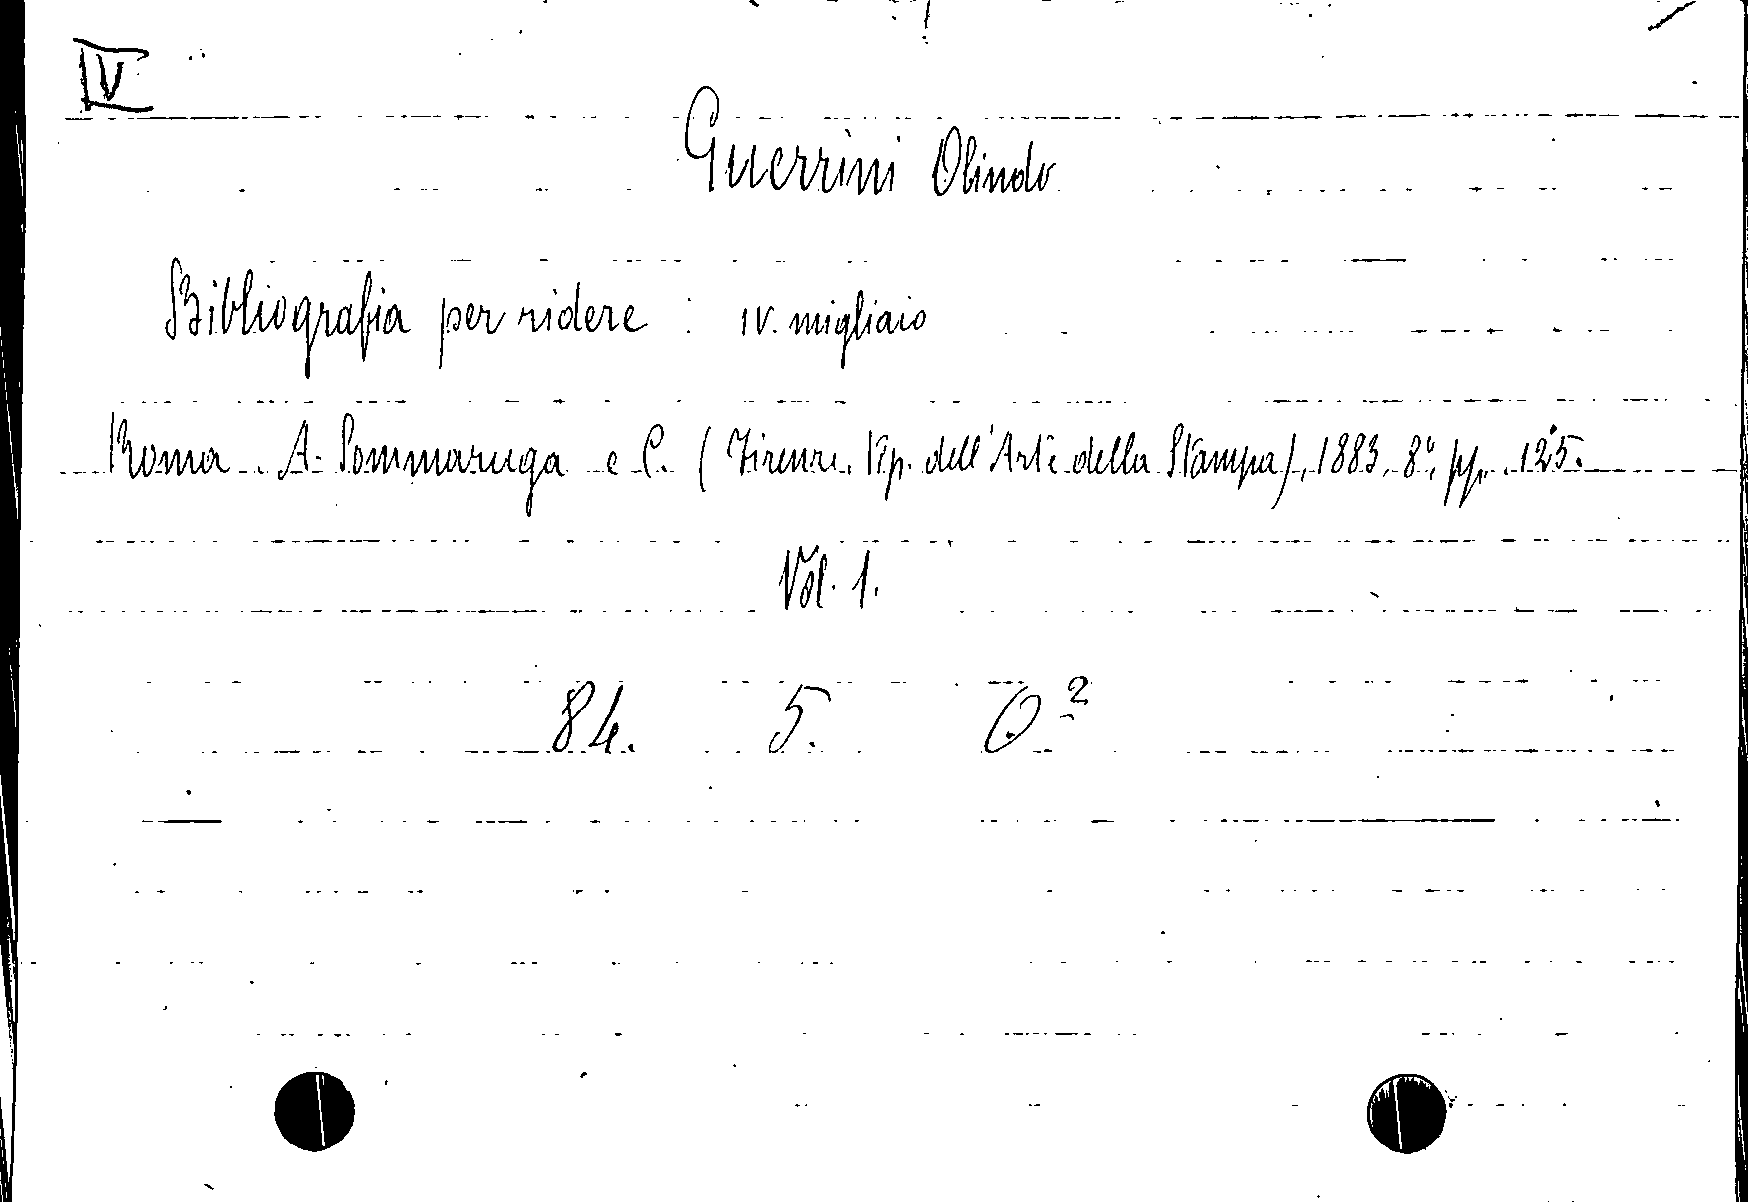 IV
Guerrini Olindo
Bibliografia per ridere : IV. migliaio
Roma. A. Sommaruga e C. (Firenze. Tip. dell'Arte della Stampa), 1883, 8°, pp. 125.
Vol. 1.
84. 5. O²